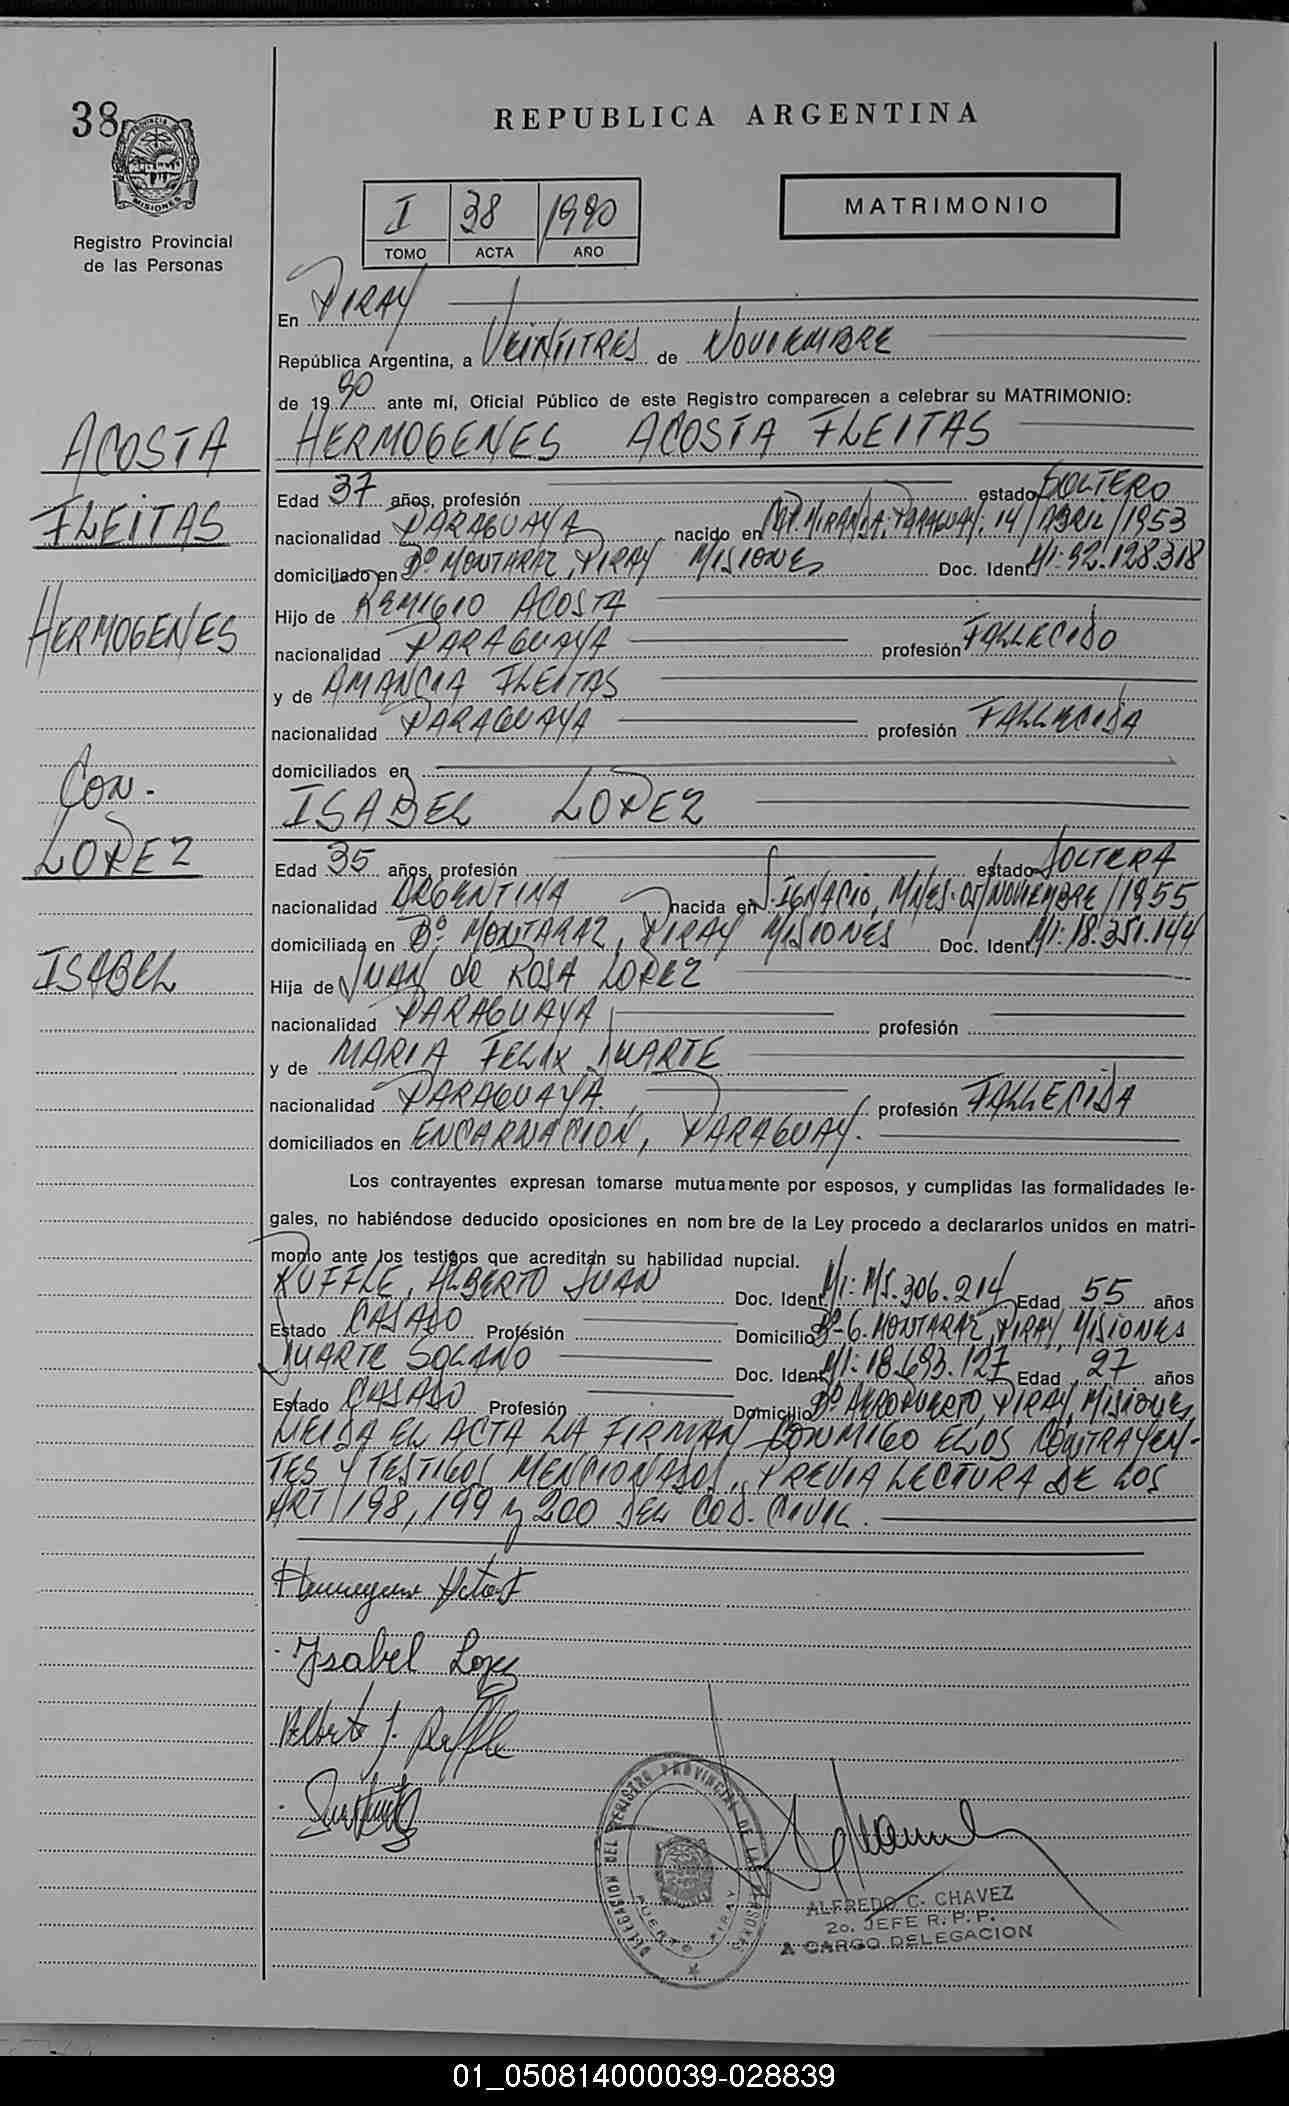 38
PROVINCIA DE
MISIONES
Registro Provincial
de las Personas
REPUBLICA ARGENTINA
I 38 1990
TOMO ACTA AÑO
MATRIMONIO
En PIRAY
República Argentina, a VEINTITRES de NOVIEMBRE
de 1990 ante mí, Oficial Público de este Registro comparecen a celebrar su MATRIMONIO:
HERMOGENES ACOSTA FLEITAS
ACOSTA
FLEITAS
HERMOGENES
CON.
LOPEZ
ISABEL
Edad 37 años, profesión estado SOLTERO
nacionalidad PARAGUAYA nacido en MIRANDA, PARAGUAY; 14/ABRIL/1953
domiciliado en Bº MONTARAZ, PIRAY MISIONES Doc. Ident. MI: 92.128.318
Hijo de REMIGIO ACOSTA
nacionalidad PARAGUAYA profesión FALLECIDO
y de AMANCIA FLEITAS
nacionalidad PARAGUAYA profesión FALLECIDA
domiciliados en
ISABEL LOPEZ
Edad 35 años, profesión estado SOLTERA
nacionalidad ARGENTINA nacida en S. IGNACIO, MNES. 05/NOVIEMBRE/1955
domiciliada en Bº MONTARAZ, PIRAY MISIONES Doc. Ident. MI: 18.351.144
Hija de JUAN de ROSA LOPEZ
nacionalidad PARAGUAYA profesión
y de MARIA FELIX DUARTE
nacionalidad PARAGUAYA. profesión FALLECIDA
domiciliados en ENCARNACION, PARAGUAY.
Los contrayentes expresan tomarse mutuamente por esposos, y cumplidas las formalidades le-
gales, no habiéndose deducido oposiciones en nombre de la Ley procedo a declararlos unidos en matri-
monio ante los testigos que acreditan su habilidad nupcial.
RUFFLE, ALBERTO JUAN Doc. Ident. MI: M5.306.214 Edad 55 años
Estado CASADO Profesión Domicilio Bº-6. MONTARAZ, PIRAY, MISIONES
DUARTE SOLANO Doc. Ident. MI: 18.693.127 Edad 27 años
Estado CASADO Profesión Domicilio Bº AEROPUERTO, PIRAY, MISIONES,
LEIDA EL ACTA LA FIRMAN CONMIGO LOS CONTRAYEN-
TES Y TESTIGOS MENCIONADOS, PREVIA LECTURA DE LOS
ART/198, 199 y 200 DEL COD. CIVIL.
Ysabel Lopez
Alberto J. Ruffle
DELEGACION DEL REGISTRO PROVINCIAL DE LAS PERSONAS
PUERTO PIRAY
ALFREDO C. CHAVEZ
2o. JEFE R. P. P.
A CARGO DELEGACION
01_050814000039-028839